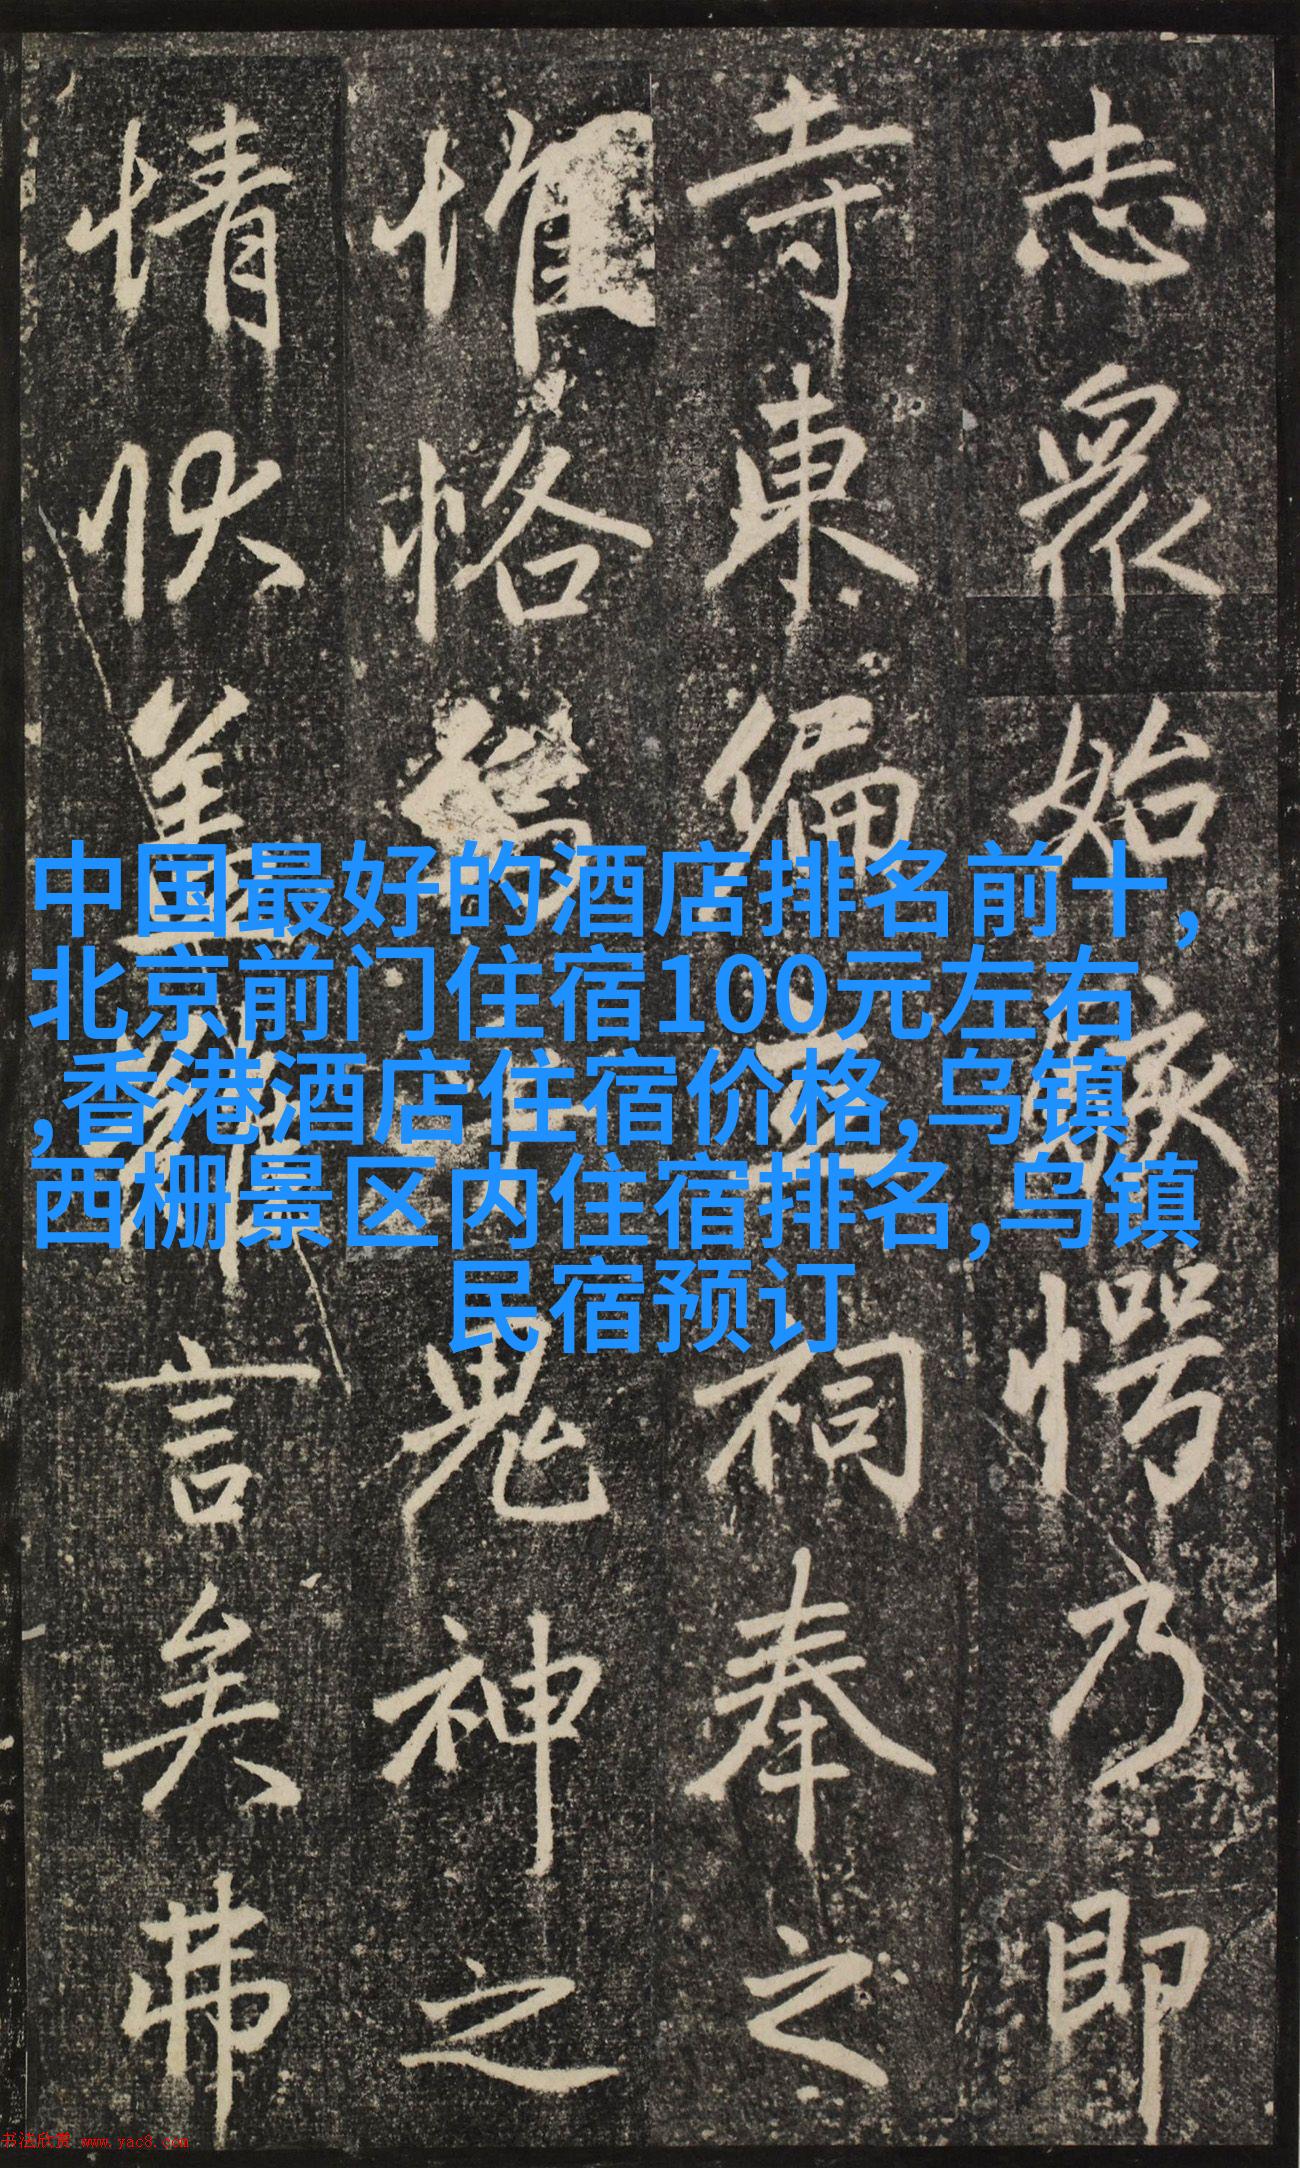 志眾始駭愕乃即
寺東偏立祠奉之
惟恪鬼神之
情狀蓋難言矣弗
中国最好的酒店排名前十,
北京前门住宿100元左右
,香港酒店住宿价格,乌镇
西栅景区内住宿排名,乌镇
民宿预订
书法欣赏 www.yac8.com